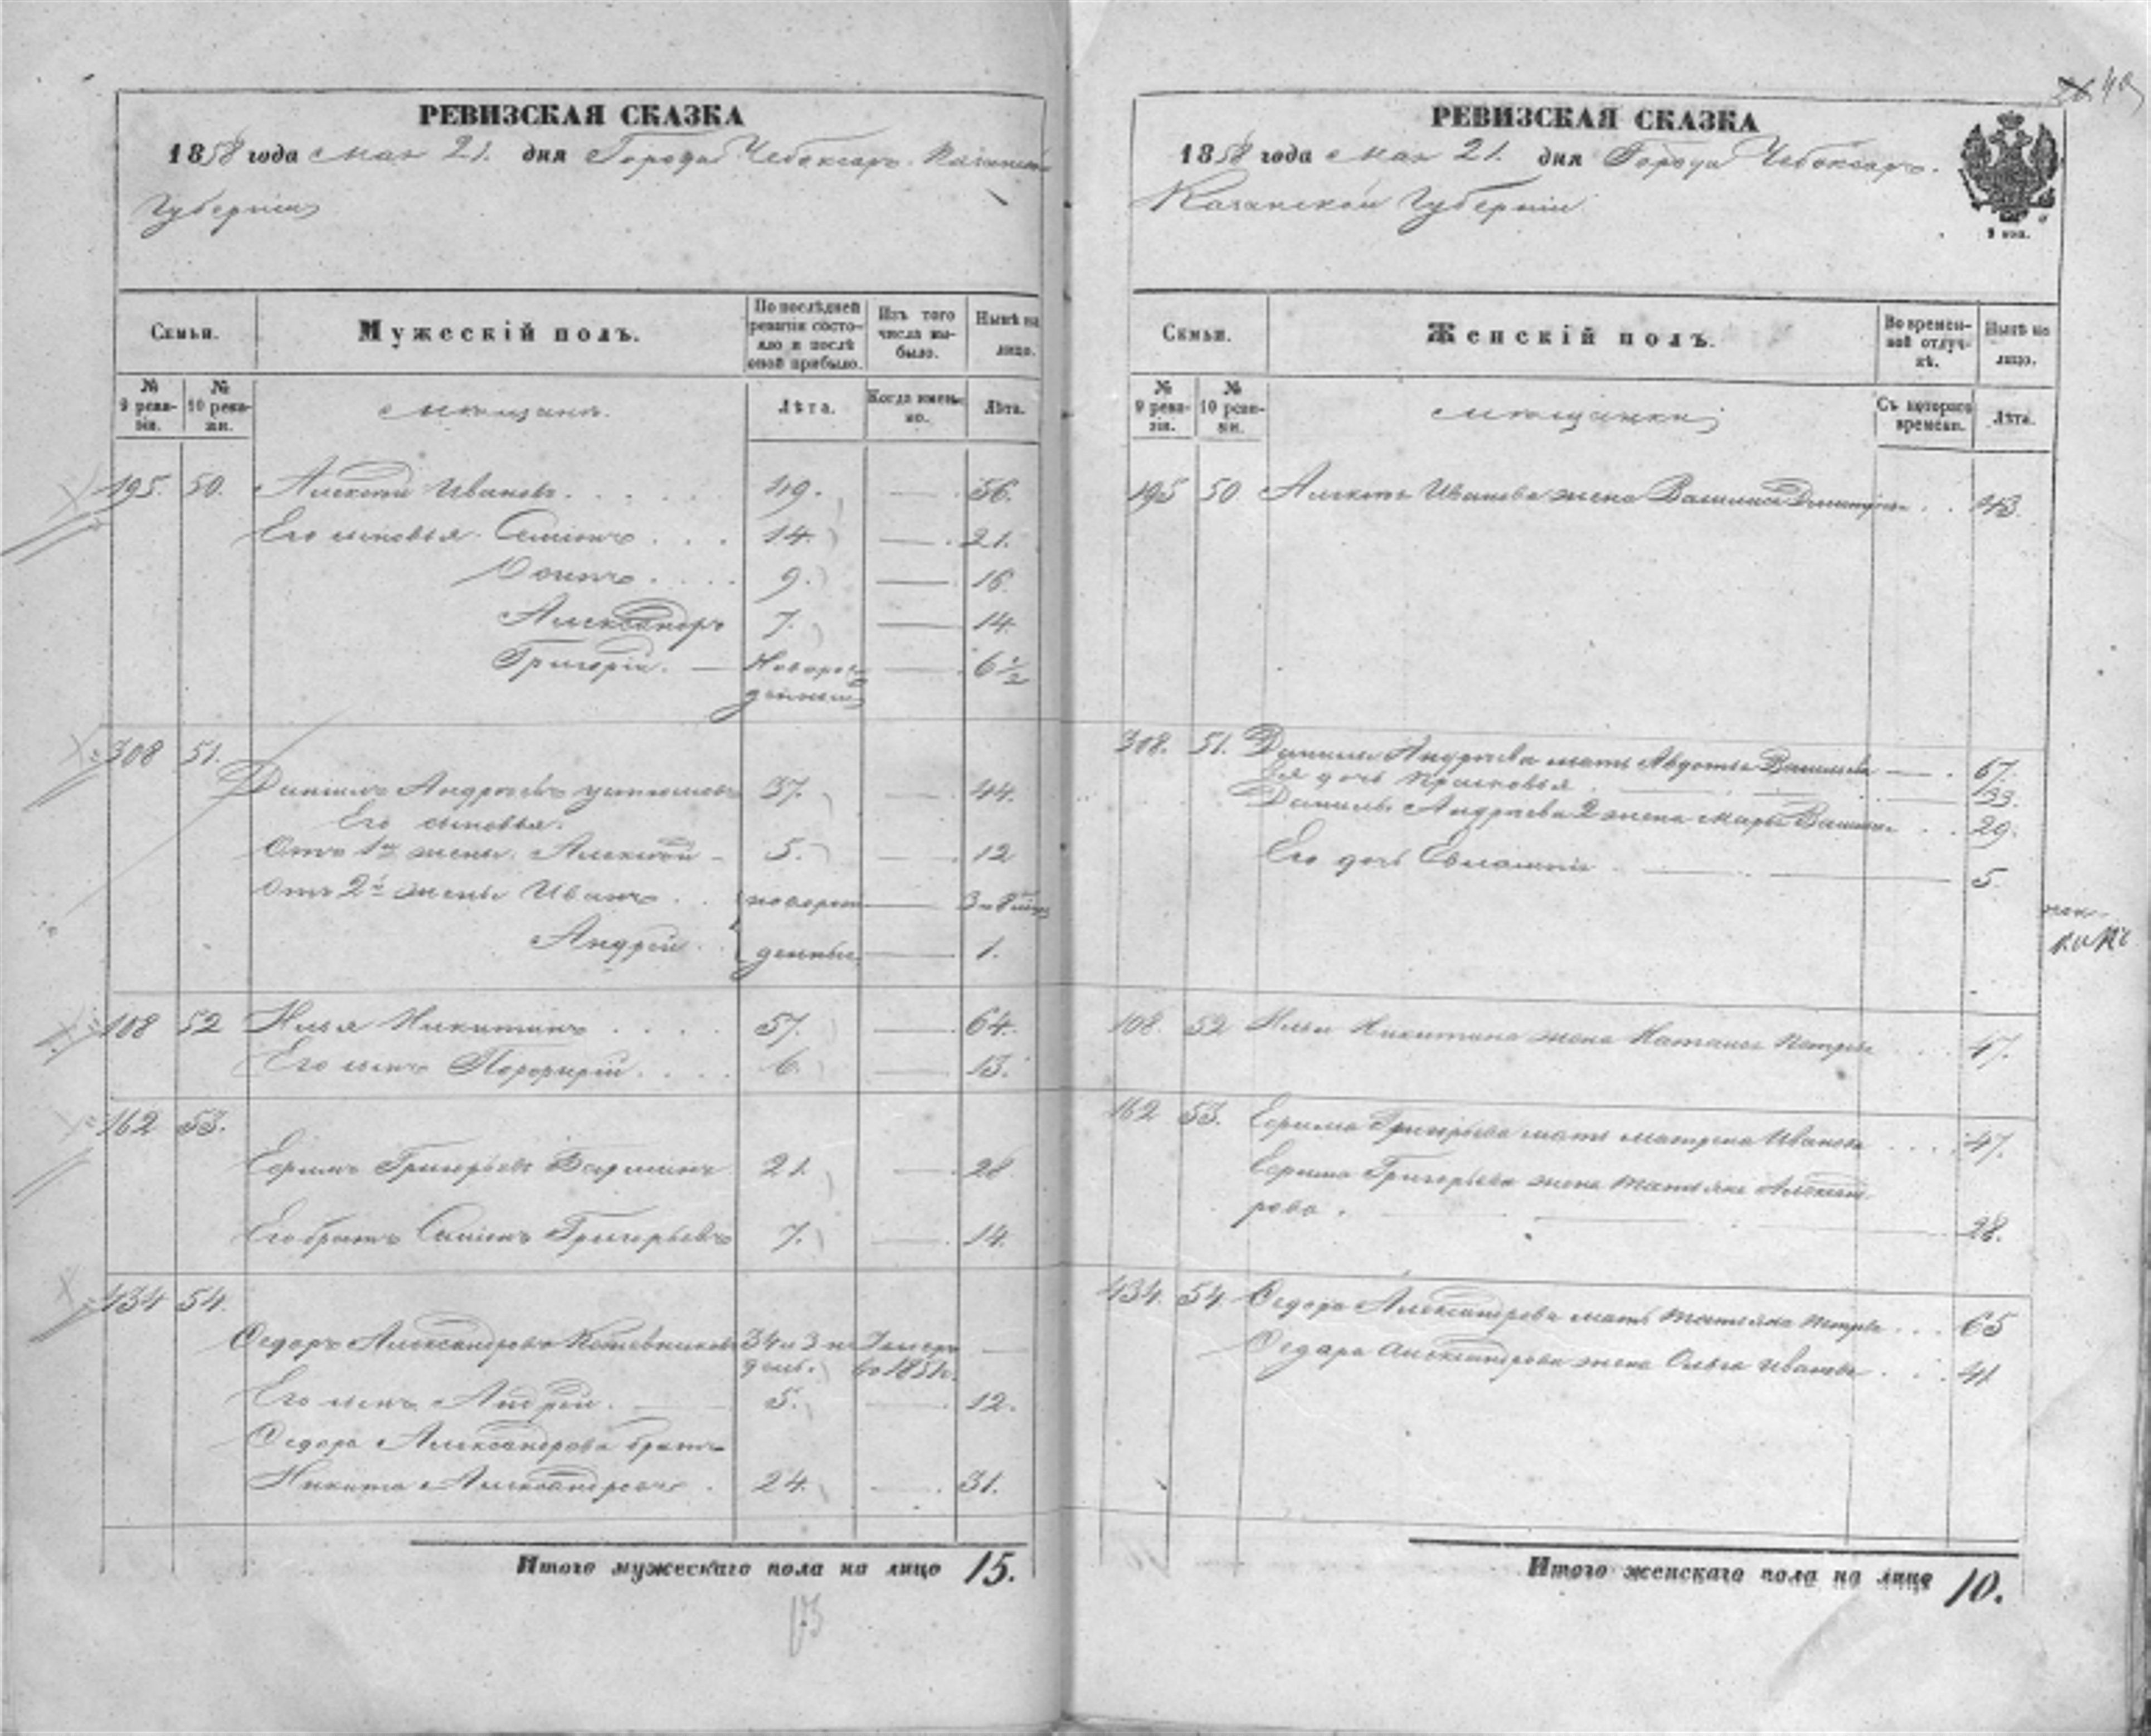 РЕВИЗСКАЯ СКАЗКА
1858 года мая 21. дня Города Чебоксаръ Казанской
Губерніи
Семьи.
Мужескій полъ.
По послѣдней ревизіи состояло и послѣ оной прибыло.
Изъ того числа выбыло.
Нынѣ на лицо.
№ 9 ревизіи.
№ 10 ревизіи.
мѣщане.
Лѣта.
Когда именно.
Лѣта.
195. 50. Алексѣй Ивановъ 49. 56.
Его сыновья Семіонъ 14. 21.
9. 16
Александръ 7. 14.
Григорій. Новорож- 6 1/2
денный
308 51.
Данилъ Андреевъ 37. 44.
Его сыновья.
Отъ 1й жены. Алексѣй 5. 12
Отъ 2й жены Иванъ новорож 3 и 8 мѣс
Андрей денные 1.
108 52 Илья Никитинъ 57. 64.
Его сынъ Порфирій 6. 13.
162 53.
Ефимъ Григорьевъ 21. 28
Его братъ Семіонъ Григорьевъ 7. 14.
434 54.
Ѳедоръ Александровъ Котевниковъ 34 и 3 не Умеръ
дѣль. въ 1851г.
Его сынъ Андрей. 5. 12.
Ѳедора Александрова братъ
Никита Александровъ. 24. 31.
Итого мужескаго пола на лицо 15.
173
РЕВИЗСКАЯ СКАЗКА
1858 года мая 21. дня Города Чебоксаръ.
Казанской Губерніи
Семьи.
Женскій полъ.
Во временной отлучкѣ.
Нынѣ на лицо.
№ 9 ревизіи.
№ 10 ревизіи.
мѣщанки
Съ котораго времени.
Лѣта.
195 50 Алексѣя Иванова жена Василиса Дмитріева 43.
308. 51. Данилы Андреева мать Авдотья Васильева 67.
Ея дочь Прасковья 33.
Данилы Андреева 2 жена Марья Васильева 29.
Его дочь Евлампія 5.
108. 52 Ильи Никитина жена Наталья Петрова 47.
162 53. Ефима Григорьева мать Матрена Иванова 47.
Ефима Григорьева жена Татьяна Александ-
рова. 28.
434. 54. Ѳедора Александрова мать Татьяна Петрова 65
Ѳедора Александрова жена Ольга Иванова 41
Итого женскаго пола на лицо 10.